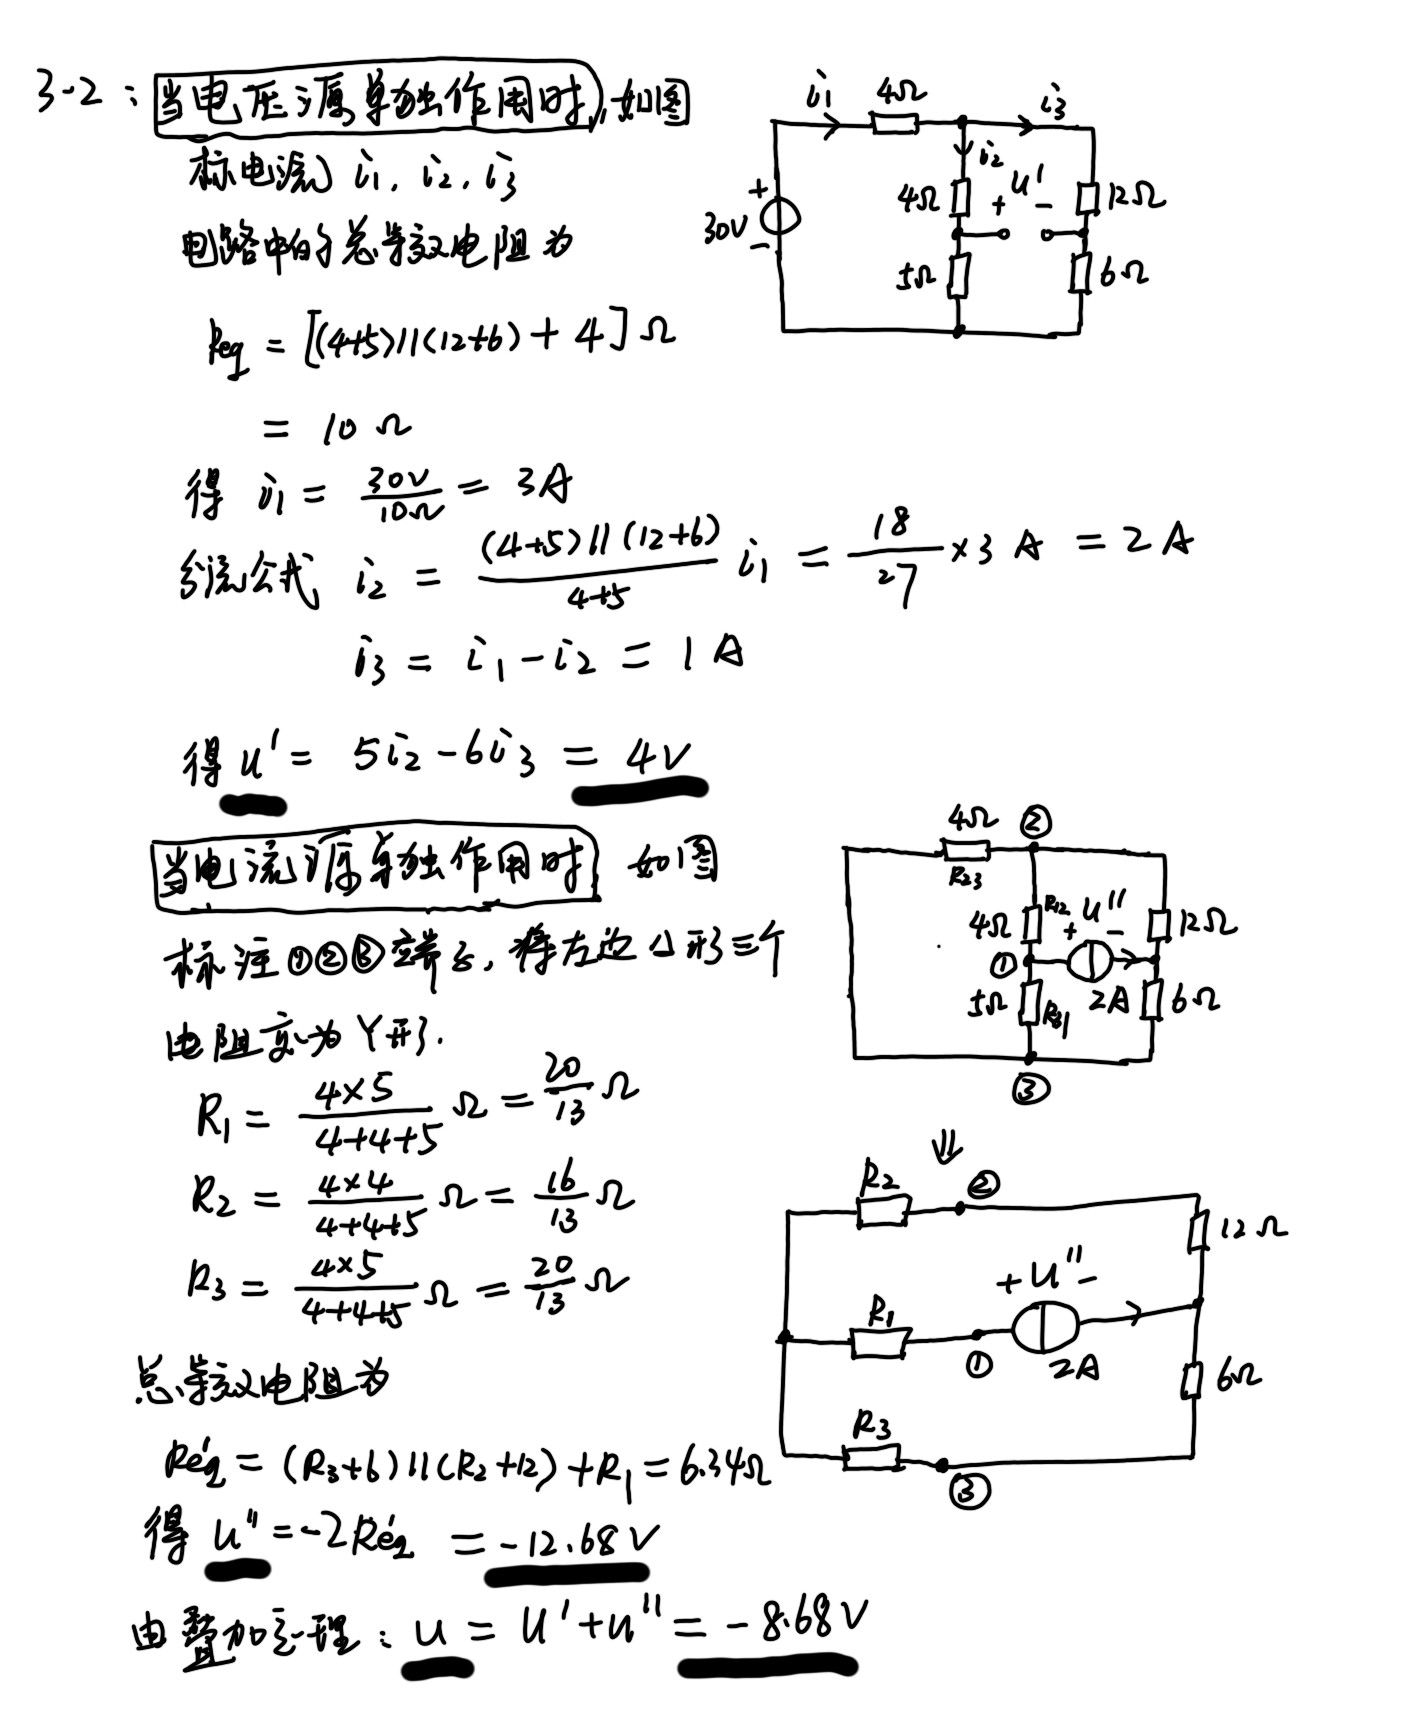 3-2：当电压源单独作用时，如图
标电流 i₁, i₂, i₃
电路中的总等效电阻为
Req = [(4+5)//(12+6) + 4] Ω
= 10 Ω
得 i₁ = 30V/10Ω = 3A
分流公式 i₂ = (4+5)//(12+6)/(4+5) i₁ = 18/27 ×3 A = 2 A
i₃ = i₁ - i₂ = 1 A
得 u' = 5i₂ - 6i₃ = 4V
i₁ 4Ω i₃
i₂
4Ω + u' - 12Ω
+ 30V -
5Ω 6Ω
当电流源单独作用时 如图
标注①②③端子, 将左边△形三个
电阻变为Y形.
R₁ = 4×5/(4+4+5) Ω = 20/13 Ω
R₂ = 4×4/(4+4+5) Ω = 16/13 Ω
R₃ = 4×5/(4+4+5) Ω = 20/13 Ω
总等效电阻为
Req' = (R₃+6)//(R₂+12)+R₁ = 6.34Ω
得 u'' = -2Req' = -12.68 V
由叠加定理：u = u'+u'' = -8.68V
4Ω ②
R₂₃
4Ω R₁₂ + u'' - 12Ω
①
5Ω R₃₁ 2A 6Ω
③
⇓
R₂ ②
12Ω
+ u'' -
R₁
① 2A
6Ω
R₃
③